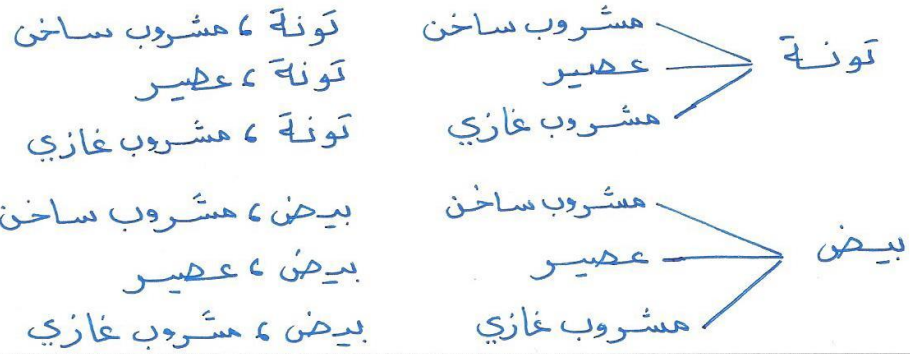 مشروب ساخن
تونة عصير
مشروب غازي
تونة ، مشروب ساخن
تونة ، عصير
تونة ، مشروب غازي
مشروب ساخن
بيض عصير
مشروب غازي
بيض ، مشروب ساخن
بيض ، عصير
بيض ، مشروب غازي